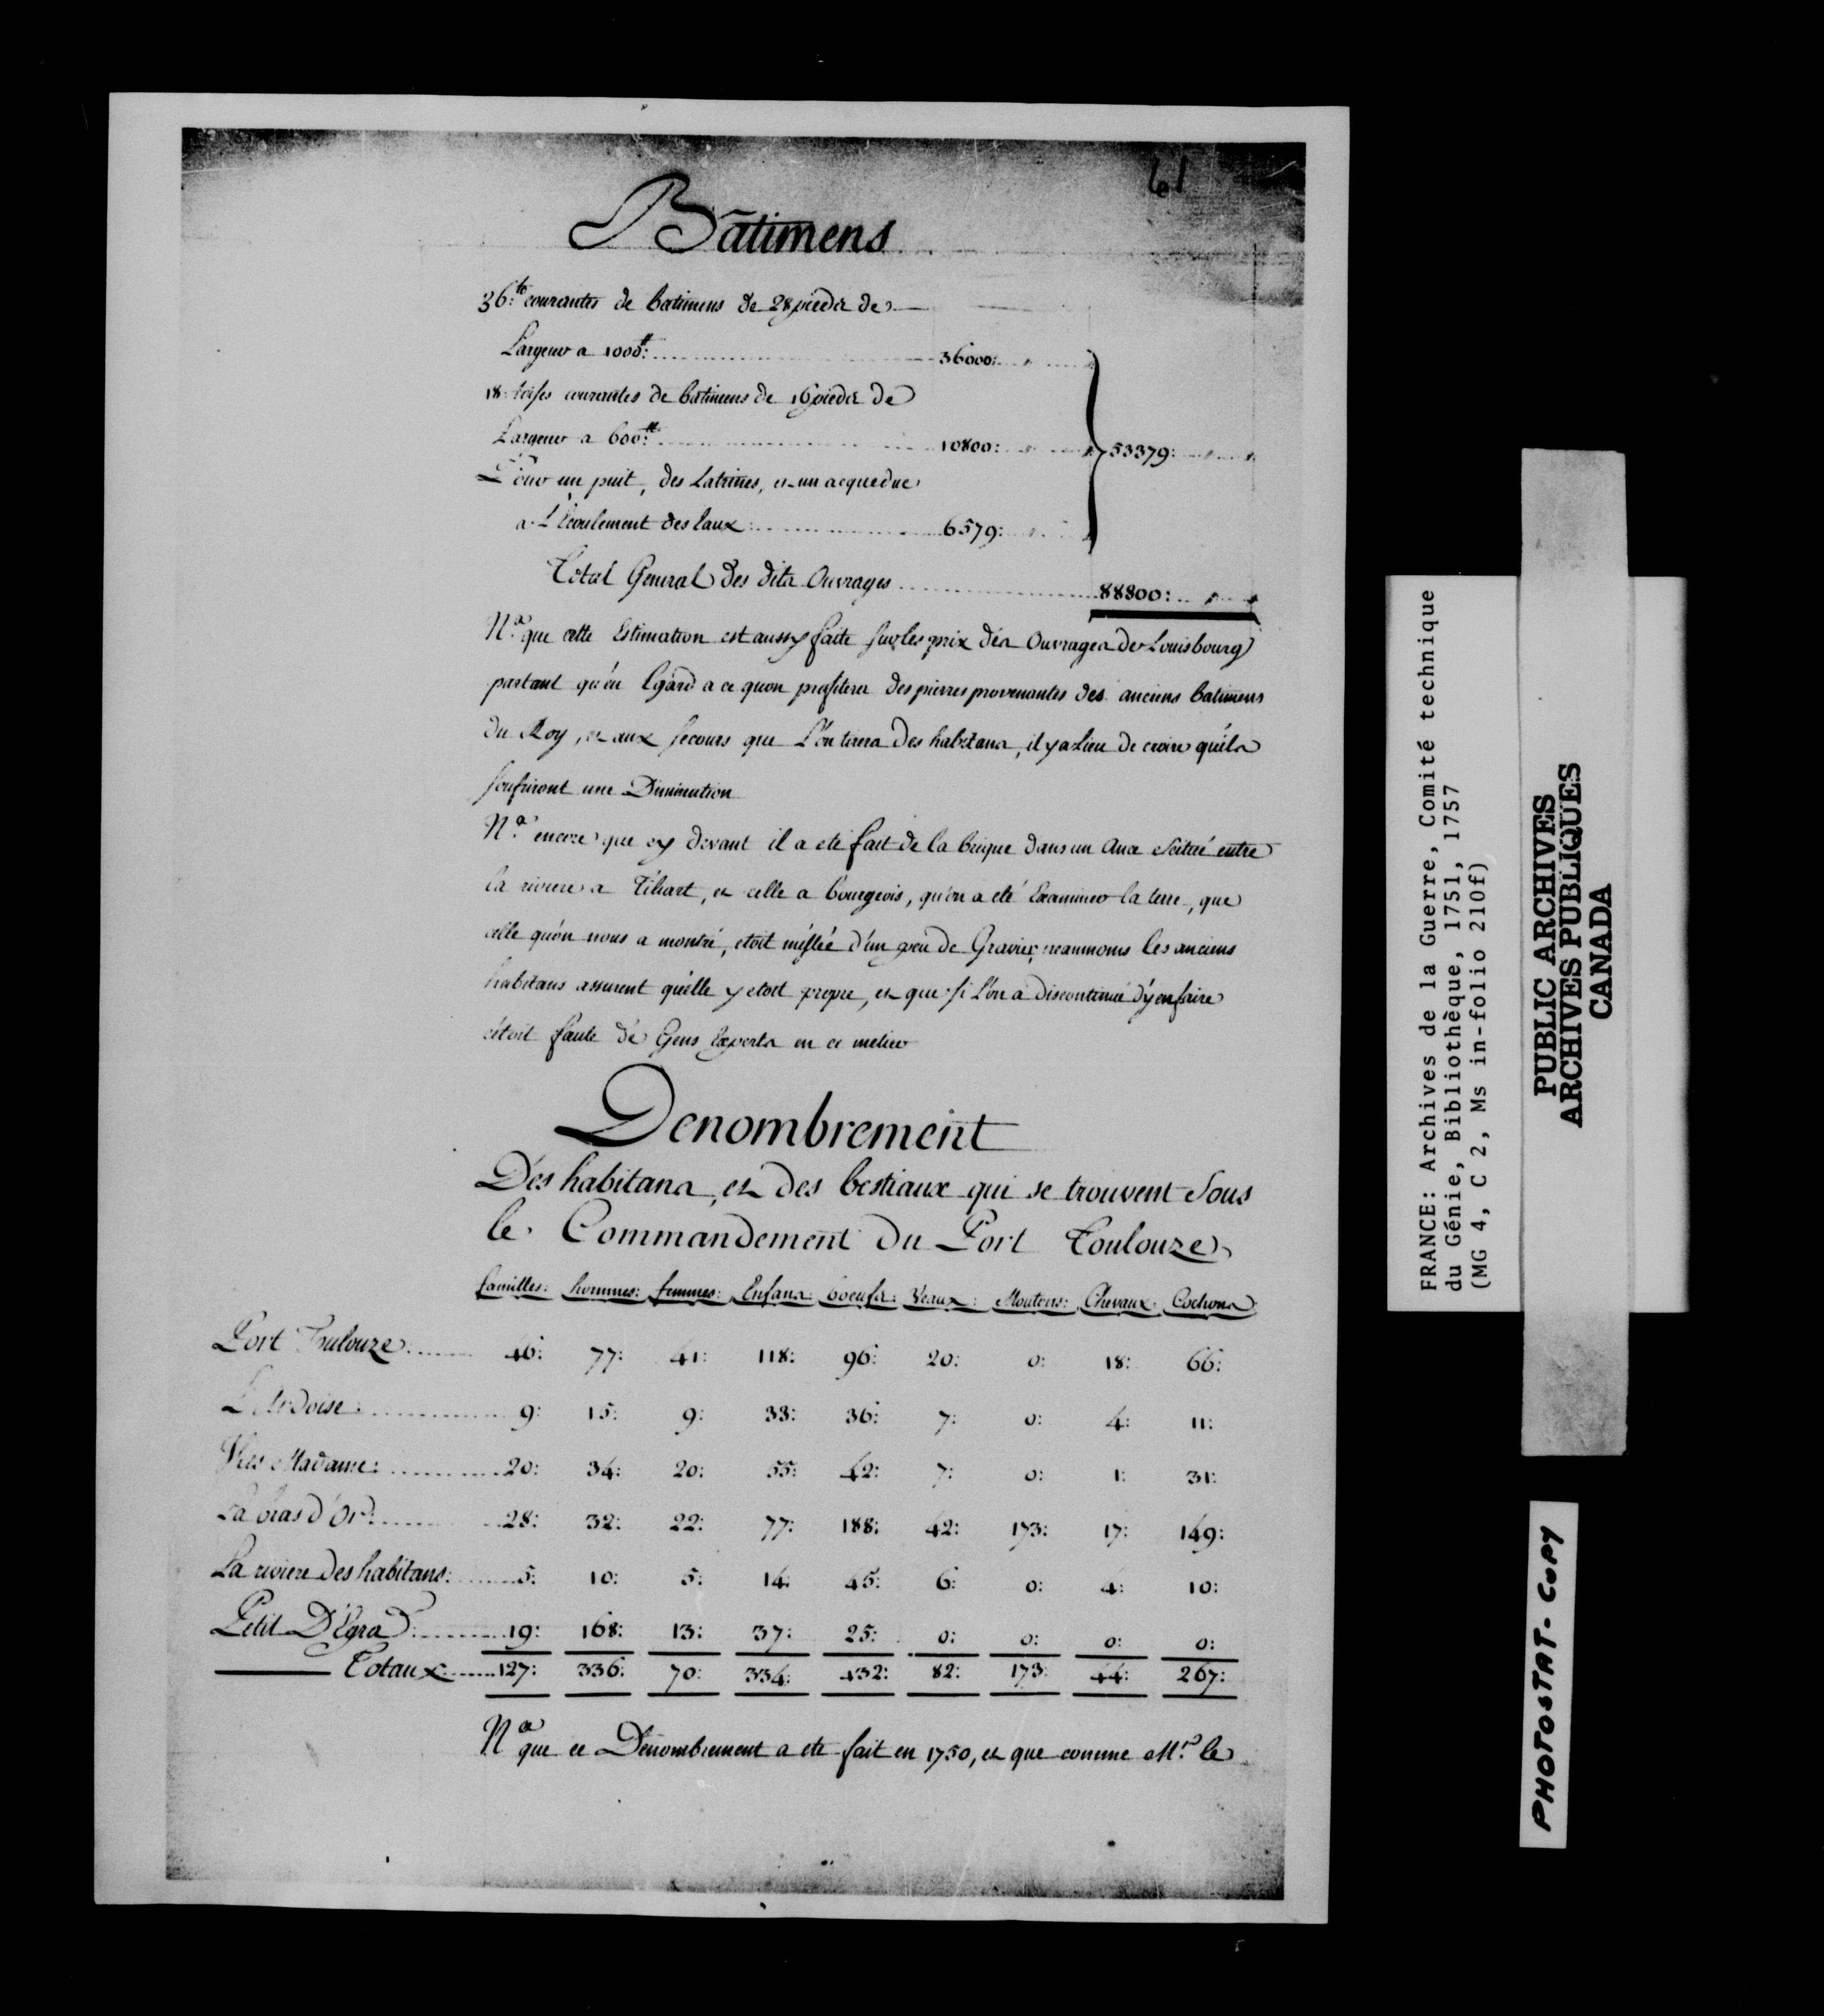 61
Bâtimens
36:to courantes de batimens de 28 pieds de
Largeur a 1000#: 36000:
18 toises courantes de batimens de 16 pieds de
Largeur a 600#: 10800: 53379:
Pour un puit, des Latrines, et un acqueduc
a L'Ecoulement des Eaux: 6579:
Total General des dits Ouvrages 88800:
N.a que cette Estimation est aussy faite sur les prix des Ouvrages de Louisbourg
partant qu'en Egard a ce quon profitera des pierres provenantes des anciens batimens
du Roy, et aux secours que L'on tirera des habitans, il y a Lieu de croire qu'ils
soufriront une Diminution
N.a encore que cy devant il a eté fait de la brique dans un Ance scitué entre
la riviere a Tillart, et celle a bourgeois, qu'on a eté Examiner la terre, que
celle qu'on nous a montré, etoit meslée d'un peu de Gravier, neanmoins les anciens
habitans assurent qu'elle y etoit propre, et que si L'on a discontinué d'y en faire
c'étoit faute de Gens Experts en ce métier
Denombrement
Des habitans, et des bestiaux qui se trouvent Sous
le Commandement du Port Toulouze
familles: hommes: femmes: Enfans: boeufs: Veaux: Moutons: Chevaux: Cochons
Port Toulouze 46: 77: 41: 118: 96: 20: 0: 18: 66:
L'Ardoise: 9: 15: 9: 33: 36: 7: 0: 4: 11:
Isles Madame: 20: 34: 20: 55: 42: 7: 0: 1: 31:
La bras d'Or: 28: 32: 22: 77: 188: 42: 173: 17: 149:
La riviere des habitans: 5: 10: 5: 14: 45: 6: 0: 4: 10:
Petit D'Egra: 19: 168: 13: 37: 25: 0: 0: 0: 0:
Totaux 127: 336: 70: 334: 432: 82: 173: 44: 267:
N.a que ce Dénombrement a eté fait en 1750, et que comme Mr. le
FRANCE: Archives de la Guerre, Comité technique
du Génie, Bibliothèque, 1751, 1757
(MG 4, C 2, Ms in-folio 210f)
PUBLIC ARCHIVES
ARCHIVES PUBLIQUES
CANADA
PHOTOSTAT-COPY